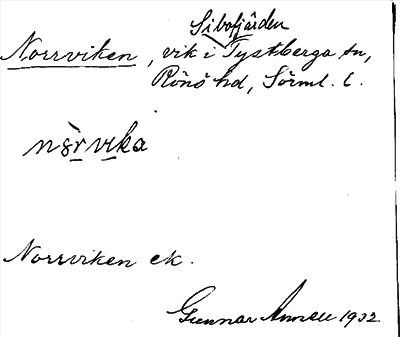 Sibofjärden
Norrviken, vik i Tystberga sn,
Rönö hd, Sörml. l.
nò̤rvika
Norrviken ek.
Gunnar Annell 1932